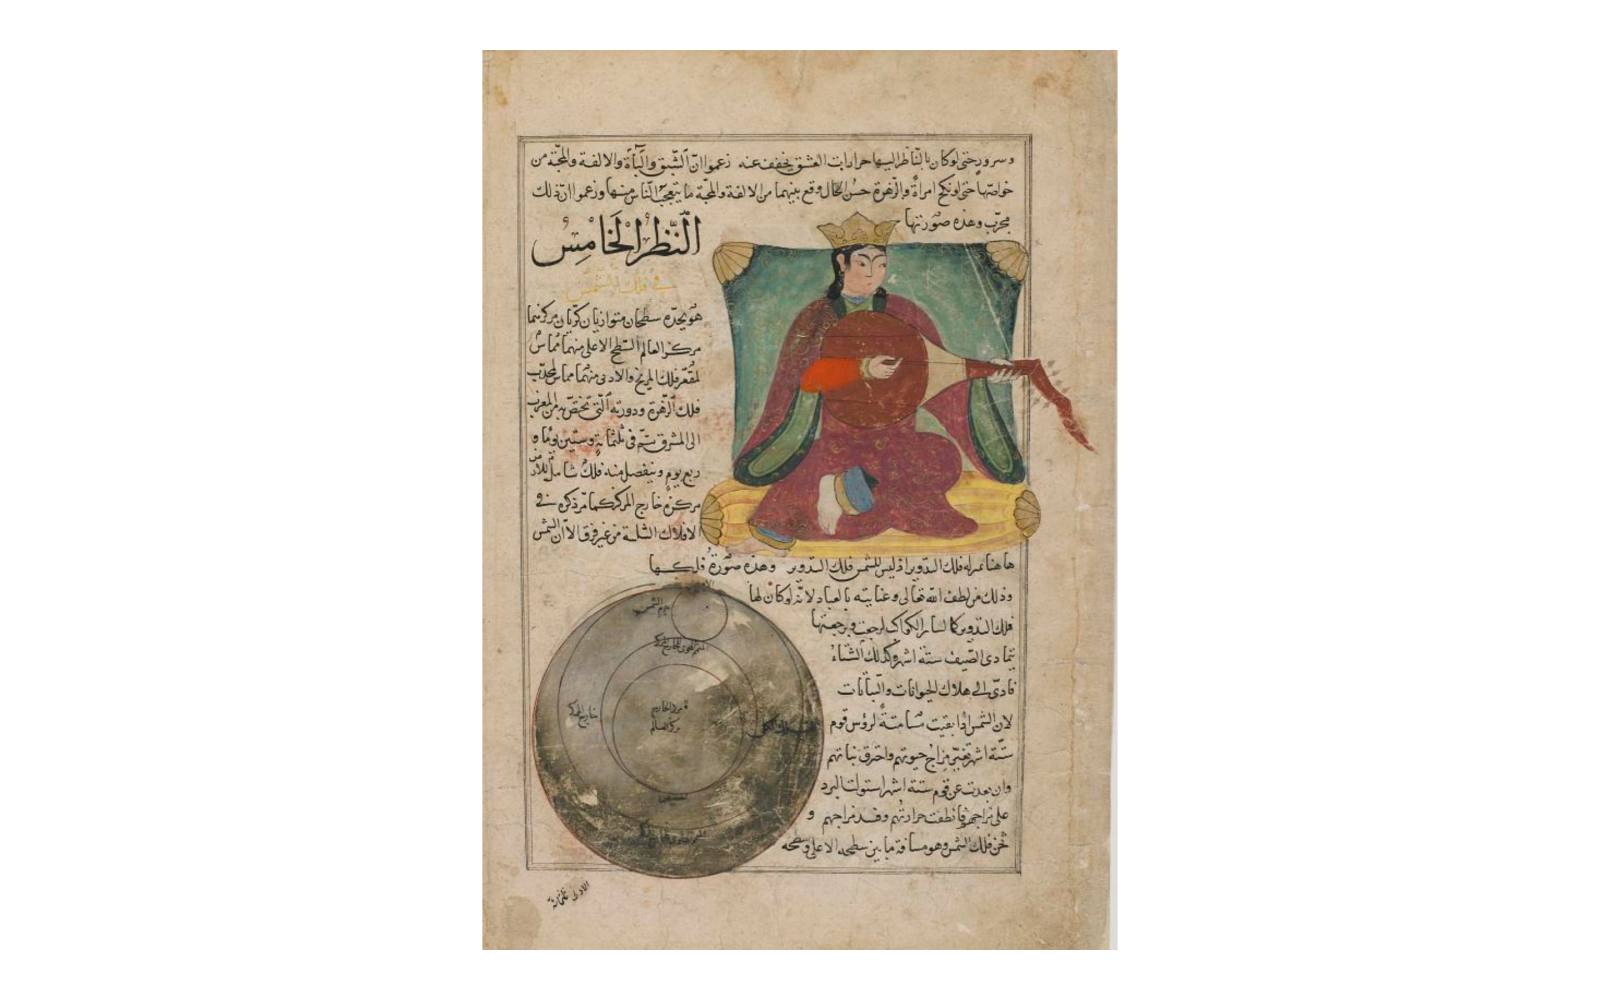 وسرور حتى لو كان بالناظر اليها حرارات العشق يخفف عنه زعموا ان الشبق والباأة والالفة والمحبة من
خواصها حتى لو نكح امراة والزهرة حسن الحال وقع بينهما من الالفة والمحبة ما يتعجب الناس منها وزعموا ان ذلك
مجرب وهذه صورتها
النظر الخامس
في فلك الشمس
هو يحده سطحان متوازيان كريان مركزهما
مركز العالم السطح الاعلى منهما مماس
لمقعر فلك المريخ والادنى منهما مماس لمحدب
فلك الزهرة ودورته التي تختص به من المغرب
الى المشرق تتم في ثلثمائة وستين يوما و
ربع يوم وينفصل منه فلك شامل للارض
مركزه خارج المركز كما مر ذكره في
الافلاك الثلثة من غير فرق الا ان الشمس
هاهنا بمنزلة فلك التدوير اذ ليس للشمس فلك التدوير وهذه صورة فلكها
وذلك من لطف الله تعالى وعنايته بالعباد لانه لو كان لها
فلك التدوير كما لسائر الكواكب لرجعت وبرجعتها
يتمادى الصيف ستة اشهر وكذلك الشتاء
فادى الى هلاك الحيوانات والنباتات
لان الشمس اذا بقيت مسامتة لرؤس قوم
ستة اشهر تغير مزاج حيوتهم واحترق نباتهم
وان بعدت عن قوم ستة اشهر استولت البرد
على مزاجهم فانطفت حرارتهم وفسد مزاجهم و
ثخن فلك الشمس وهو مسافة ما بين سطحه الاعلى وسطحه
جرم الشمس
خارج المركز
مركز الخارج
مركز العالم
الادنى ثلثمائة